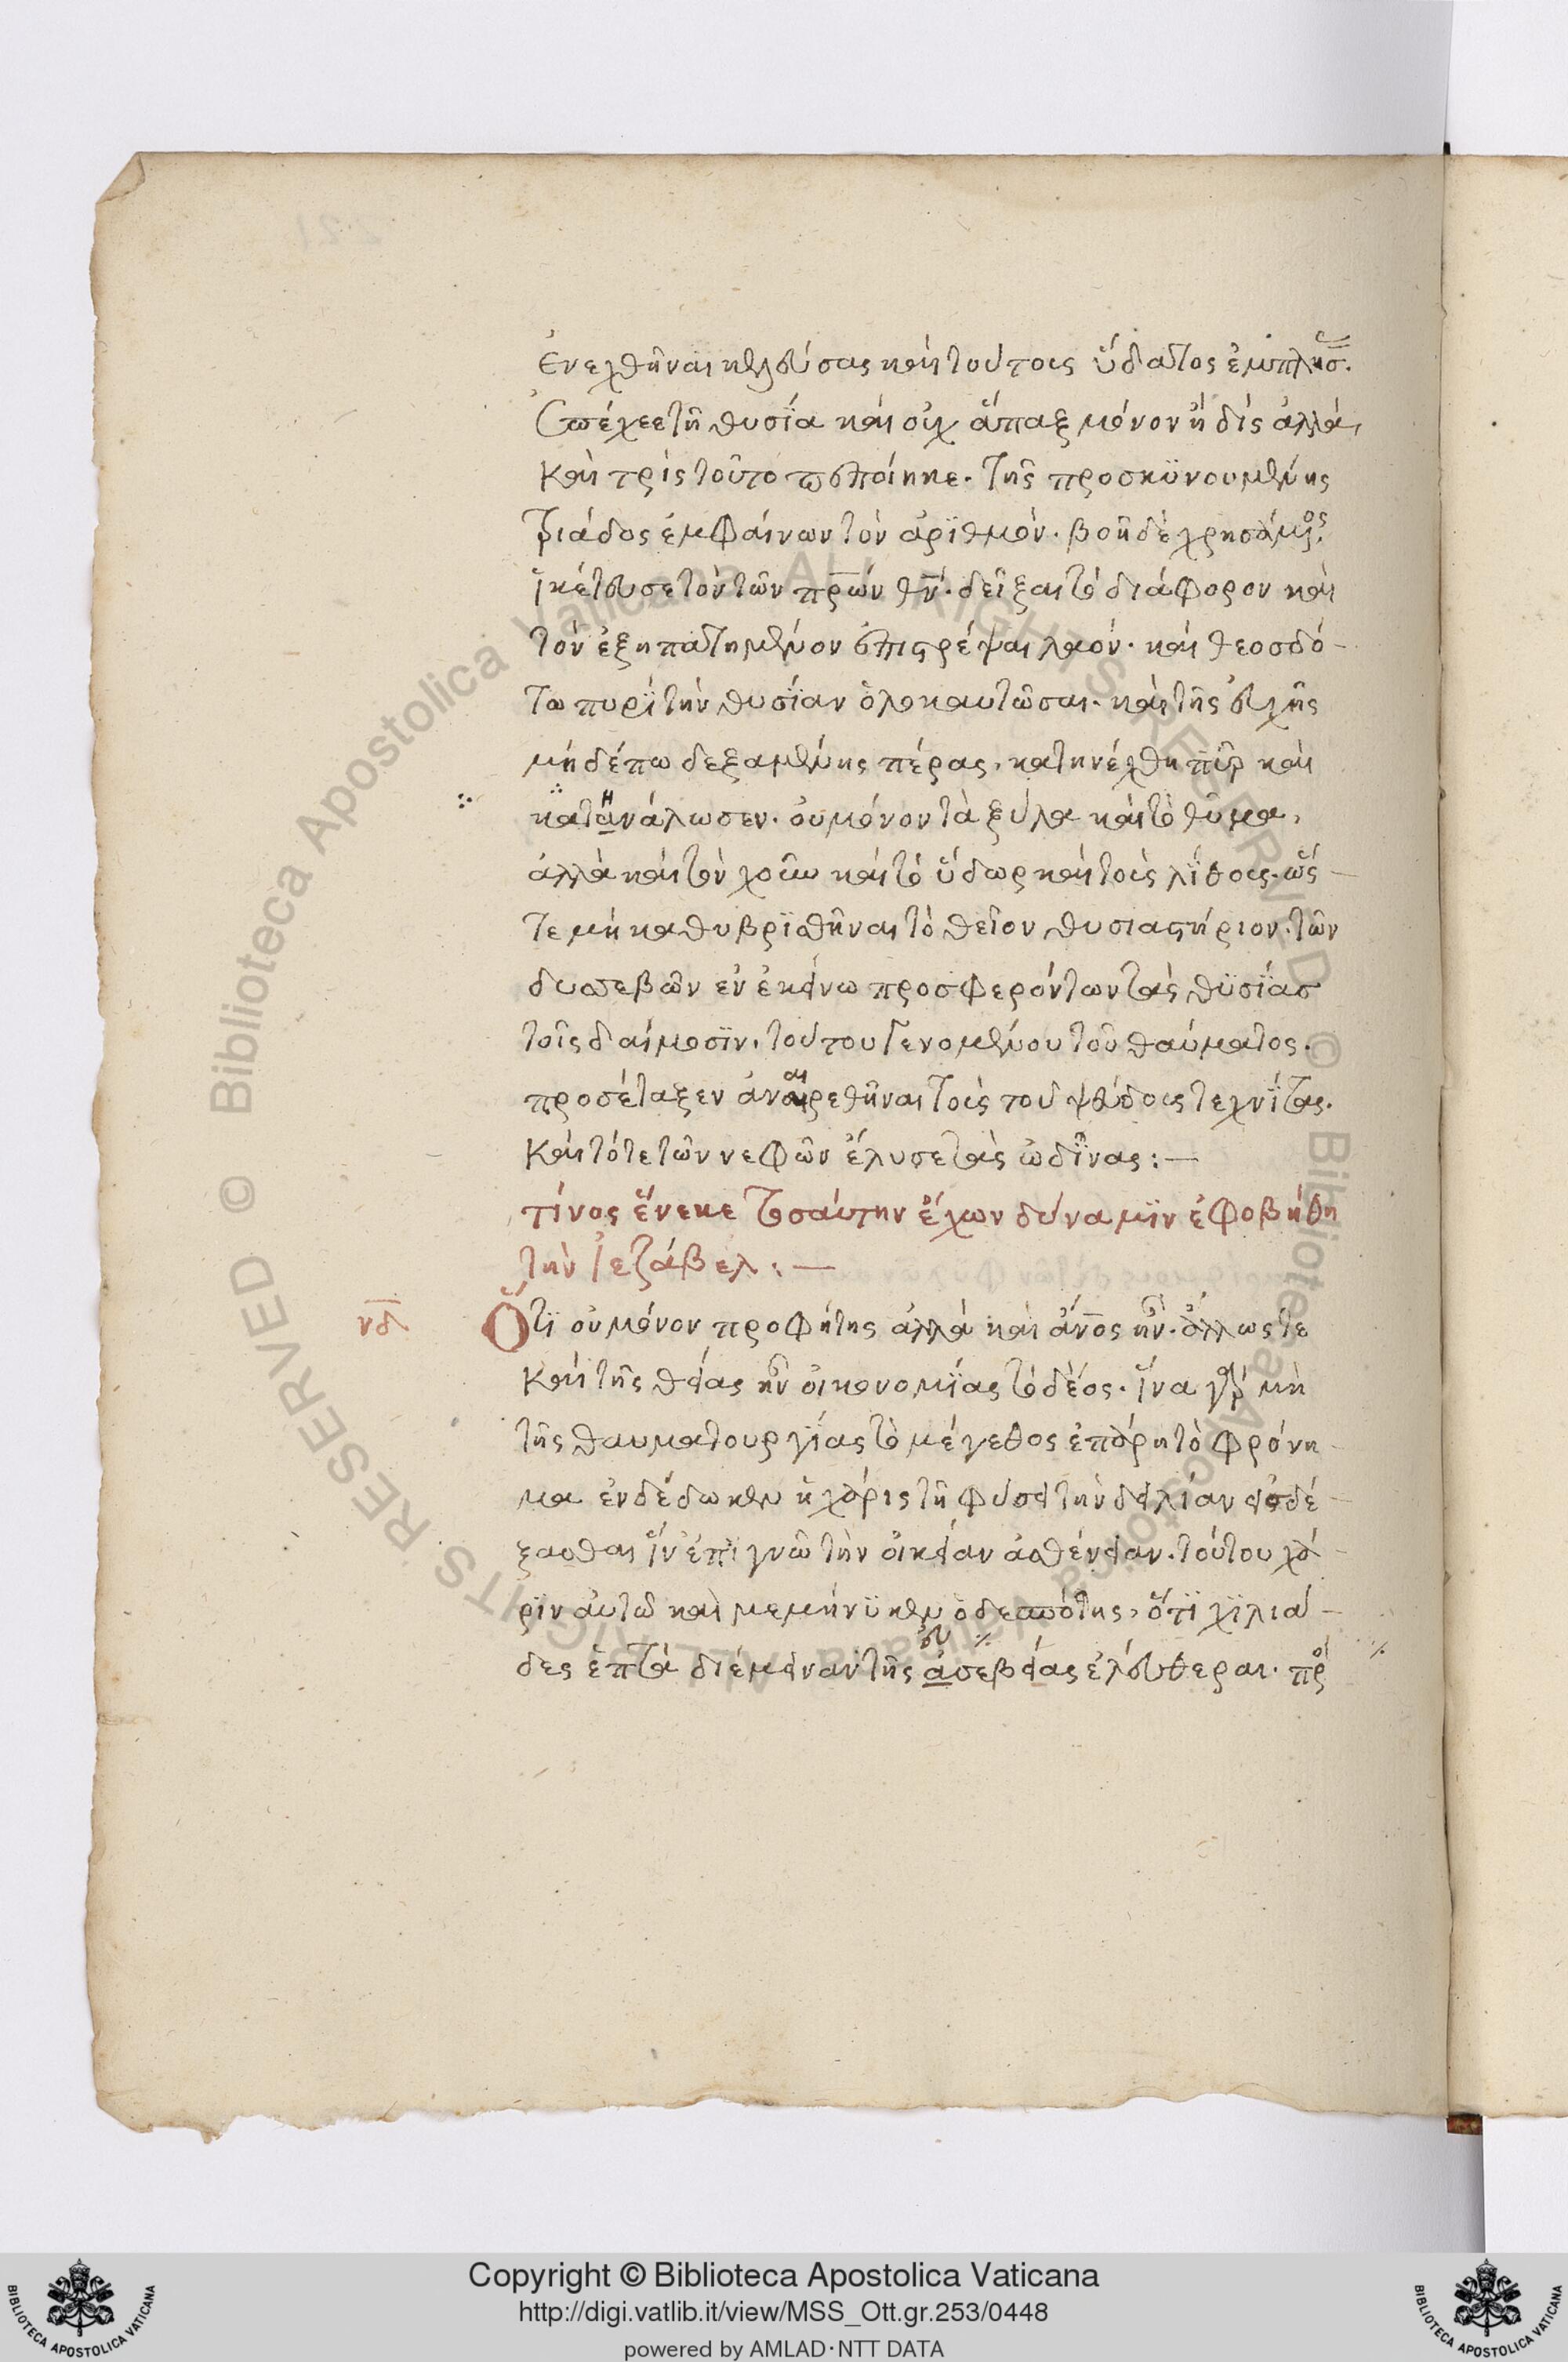 ἐνεχθῆναι κελεύσας καὶ τούτους ὕδατος ἐμπλησ.
ἐπέχεε τῆ θυσΐα καὶ οὐχ ἅπαξ μόνον ἢ δὶς ἀλλὰ,
καὶ τρὶς τοῦτο πεποίηκε. τῆς προσκϋνουμένης
τριάδος ἐμφαίνων τὸν ἀρϊθμόν. βοῆ δὲ χρησάμενος
ἱκέτευσε τὸν τῶν πρῶν θν. δεῖξαι τὸ διάφορον καὶ
τὸν ἐξηπατημένον ἐπιστρέψαι λαόν. καὶ θεοσδό-
τω πυρῒ τὴν θυσΐαν ὁλοκαυτῶσαι. καὶ τῆς εὐχῆς
μὴ δέπω δεξαμένης πέρας, κατηνέχθη πῦρ καὶ
κατανάλωσεν. οὐ μόνον τὰ ξύλα καὶ τὸ θῦμα,
ἀλλὰ καὶ τὸν χοῦν καὶ τὸ ὕδωρ καὶ τοὺς λΐθους. ὥς-
τε μὴ καθυβρϊσθῆναι τὸ θεῖον θυσιαστήριον. τῶν
δυσσεβῶν ἐν ἐκείνω προσφερόντων τὰς θϋσΐας
τοῖς δαίμοσϊν. τούτου γενομένου τοῦ θαύματος.
προσέταξεν ἀναιρεθῆναι τοὺς τοῦ ψεύδους τεχνΐτας.
καὶ τότε τῶν νεφῶν ἔλυσε τὰς ὠδῖνας :—
τίνος ἕνεκε τοσαύτην ἔχων δύναμϊν ἐφοβήθη
τὴν Ἰεζάβελ :—
νδ Ὅτϊ οὐ μόνον προφήτης ἀλλὰ καὶ ἄνος ἦν. ἄλλως τε
καὶ τῆς θείας ἦν οἰκονομΐας τὸ δέος. ἵνα γὰρ μὴ
τῆς θαυματουργΐας τὸ μέγεθος ἐπάρη τὸ φρόνη-
μα ἐνδέδωκεν ἡ χάρις τῆ φύσει τὴν δειλίαν εἰσδέ-
ξασθαι ἵν ἐπιγνῶ τὴν οἰκείαν ἀσθένειαν. τούτου χά-
ρϊν αὐτῶ καὶ μεμήνϋκεν ὁ δεσπότης, ὅτϊ χϊλιά-
δες ἑπτὰ διέμειναν τῆς ἀσεβείας ἐλεύθεραι. πρὸς
Copyright © Biblioteca Apostolica Vaticana
http://digi.vatlib.it/view/MSS_Ott.gr.253/0448
powered by AMLAD·NTT DATA